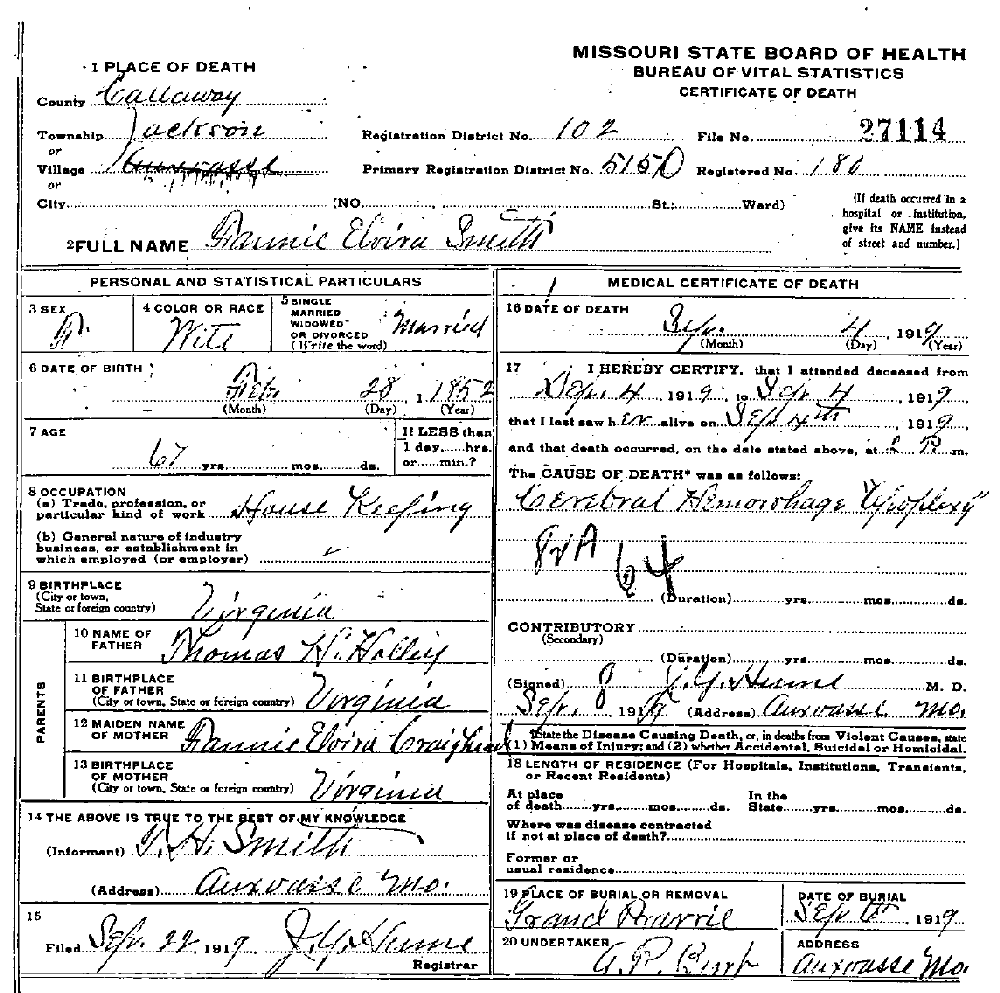 MISSOURI STATE BOARD OF HEALTH
BUREAU OF VITAL STATISTICS
CERTIFICATE OF DEATH
1 PLACE OF DEATH
County Callaway
Township Jackson
or
Village Auxvasse
or
City (NO. , St.; Ward)
Registration District No. 102 File No. 27114
Primary Registration District No. 5150 Registered No. 180
(If death occurred in a
hospital or institution,
give its NAME instead
of street and number.)
2 FULL NAME Fannie Elvira Smith
PERSONAL AND STATISTICAL PARTICULARS
3 SEX F.
4 COLOR OR RACE Wite
5 SINGLE
MARRIED
WIDOWED
OR DIVORCED
(Write the word) Married
6 DATE OF BIRTH Feb. 28, 1852
(Month) (Day) (Year)
7 AGE
67 yrs. mos. ds.
If LESS than
1 day, hrs.
or min.?
8 OCCUPATION
(a) Trade, profession, or
particular kind of work House Keeping
(b) General nature of industry
business, or establishment in
which employed (or employer)
9 BIRTHPLACE
(City or town,
State or foreign country) Virginia
PARENTS
10 NAME OF
FATHER Thomas H. Holley
11 BIRTHPLACE
OF FATHER
(City or town, State or foreign country) Virginia
12 MAIDEN NAME
OF MOTHER Fannie Elvira Craighead
13 BIRTHPLACE
OF MOTHER
(City or town, State or foreign country) Virginia
14 THE ABOVE IS TRUE TO THE BEST OF MY KNOWLEDGE
(Informant) H. Smith
(Address) Auxvasse Mo.
15
Filed Sep. 22 1919 J.Y. Hume
Registrar
MEDICAL CERTIFICATE OF DEATH
16 DATE OF DEATH Sep. 4, 1919
(Month) (Day) (Year)
17 I HEREBY CERTIFY, that I attended deceased from
Sep. 4 1919, to Sep 4 1919
that I last saw her alive on Sep 4th, 1919,
and that death occurred, on the date stated above, at P. m.
The CAUSE OF DEATH* was as follows:
Cerebral Hemorohage
82A
64
(Duration) yrs. mos. ds.
CONTRIBUTORY
(Secondary)
(Duration) yrs. mos. ds.
(Signed) J.Y. Hume M. D.
Sep. 8 1919 (Address) Auxvasse Mo.
*State the Disease Causing Death, or, in deaths from Violent Causes, state
(1) Means of Injury; and (2) whether Accidental, Suicidal or Homicidal.
18 LENGTH OF RESIDENCE (For Hospitals, Institutions, Transients,
or Recent Residents)
At place
of death yrs. mos. ds.
In the
State yrs. mos. ds.
Where was disease contracted
if not at place of death?
Former or
usual residence
19 PLACE OF BURIAL OR REMOVAL
Grand Prairie
DATE OF BURIAL
Sep 1919
20 UNDERTAKER
ADDRESS
Auxvasse Mo.